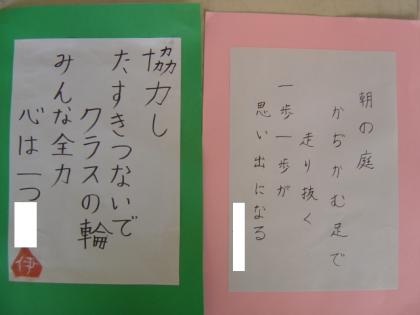 朝の庭
かぢかむ足で
走り抜く
一歩一歩が
思い出になる
協力し
たすきつないで
クラスの輪
みんな全力
心は一つ
伊